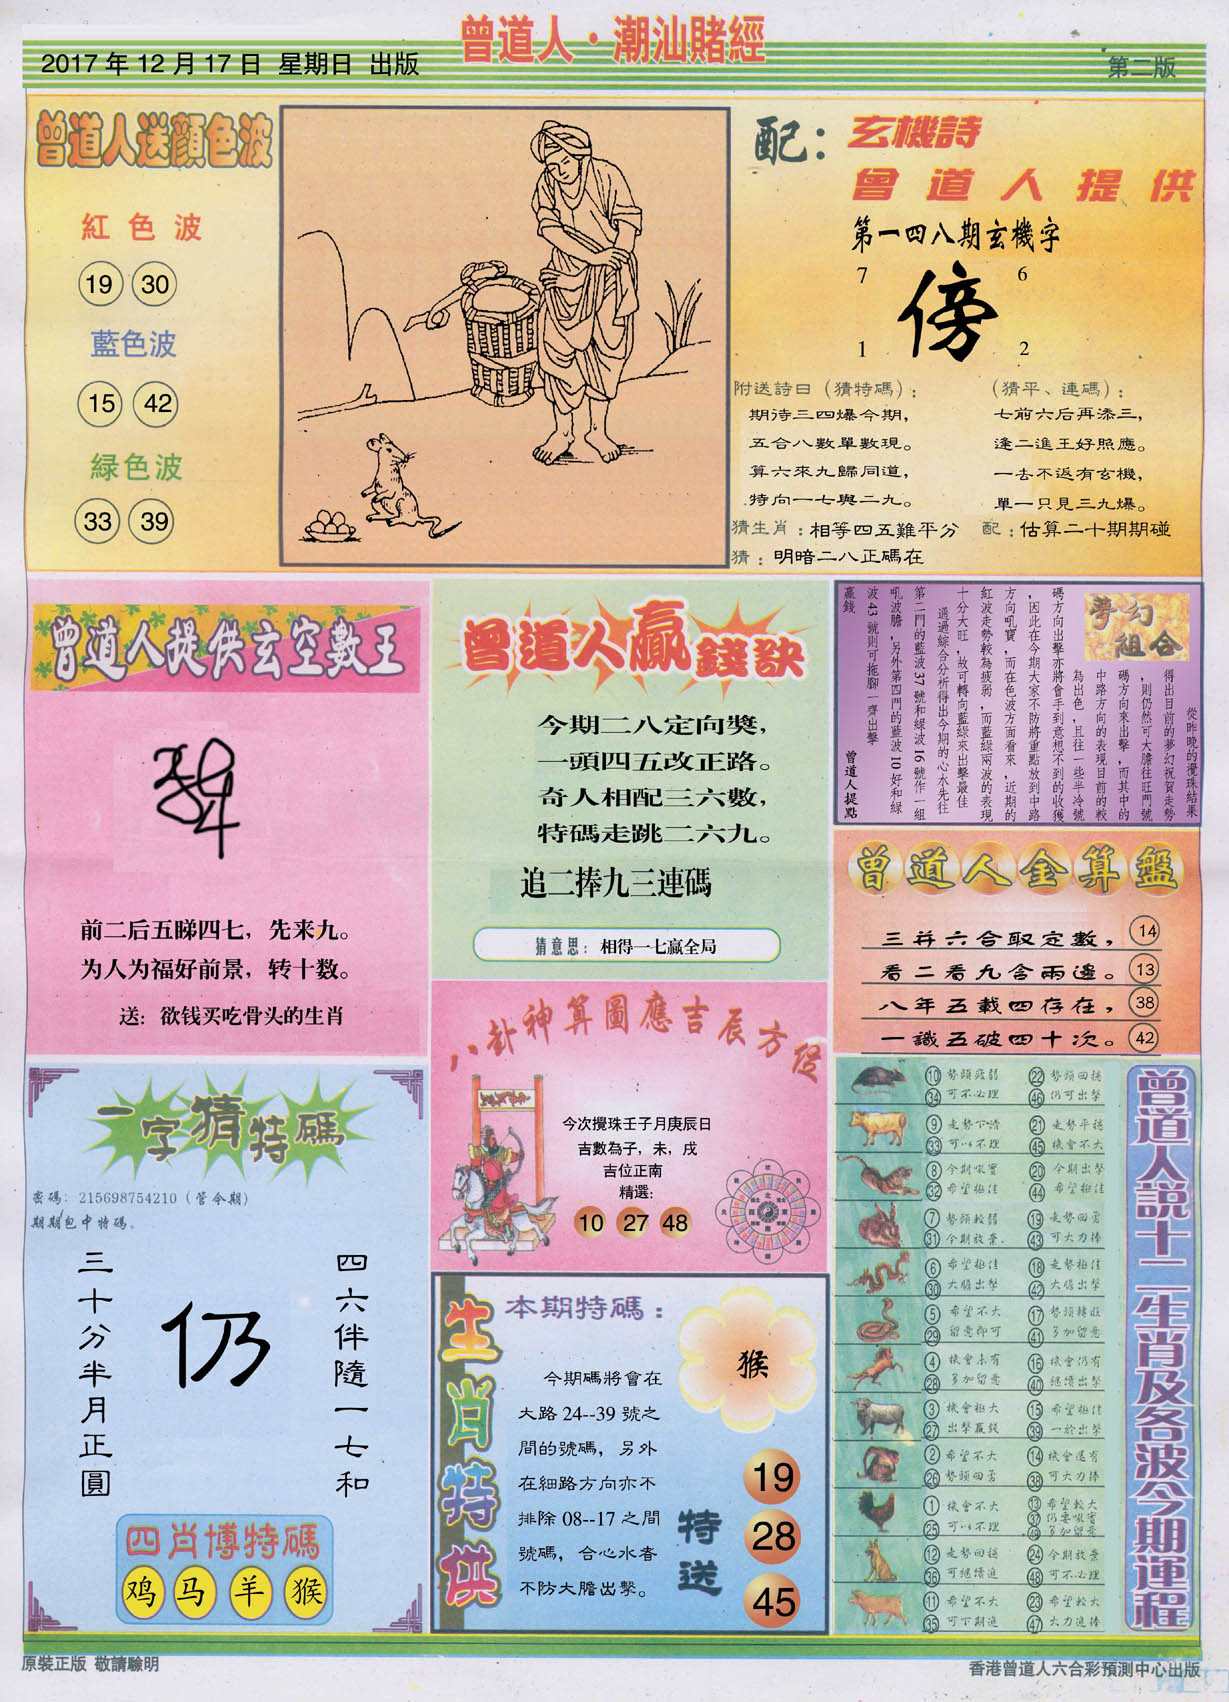 曾道人·潮汕賭經
2017年12月17日 星期日 出版
第二版
曾道人送顏色波
紅色波
19 30
藍色波
15 42
緑色波
33 39
配：玄機詩
曾道人提供
第一四八期玄機字
7 6
傍
1 2
附送詩曰（猜特碼）：
期待三四爆今期，
五合八數單數現。
算六來九歸同道，
特向一七與二九。
（猜平、連碼）：
七前六后再添三，
逢二進王好照應。
一去不返有玄機，
單一只見三九爆。
猜生肖：相等四五難平分
配：估算二十期期碰
猜：明暗二八正碼在
曾道人提供玄空數王
前二后五睇四七，先来九。
为人为福好前景，转十数。
送：欲钱买吃骨头的生肖
曾道人贏錢訣
今期二八定向獎，
一頭四五改正路。
奇人相配三六數，
特碼走跳二六九。
追二捧九三連碼
猜意思：相得一七贏全局
夢幻組合
從昨晚的攪珠結果
得出目前的夢幻祝賀走勢
，則仍然可大膽往旺門號
碼方向來出擊，而其中的
中路方向的表現目前的較
為出色，且往一些半冷號
碼方向出擊亦將會手到意想不到的收獲
，因此在今期大家不防將重點放到中路
方向吼寶，而在色波方面看來，近期的
紅波走勢較為疲弱，而藍綠兩波的表現
十分大旺，故可轉向藍綠來出擊最佳
通過綜合分析得出今期的心水先往
第二門的藍波37號和綠波16號作一組
吼波膽，另外第四門的藍波10好和綠
波43號則可拖腳一齊出擊
贏錢
曾道人提點
曾道人金算盤
三并六合取定數， 14
看二看九含兩邊。 13
八年五載四存在， 38
一識五破四十次。 42
八卦神算圖應吉辰方位
今次攪珠壬子月庚辰日
吉數為子，未，戌
吉位正南
精選：
10 27 48
一字猜特碼
密碼：215698754210（管今期）
期期包中特碼。
四六伴隨一七和
仍
三十分半月正圓
四肖博特碼
鸡 马 羊 猴
生肖特供
本期特碼：
猴
今期碼將會在
大路24--39號之
間的號碼，另外
在細路方向亦不
排除08--17之間
號碼，合心水者
不防大膽出擊。
特送
19
28
45
曾道人説十二生肖及各波今期運程
10 勢頭疲弱 22 勢頭回穩
34 可不必理 46 仍可出擊
9 走勢不清 21 走勢平穩
33 可以不理 45 機會不大
8 今期吼寶 20 今期出擊
32 希望極佳 44 希望極佳
7 勢頭較弱 19 走勢回勇
31 今期放棄 43 可大力捧
6 希望極佳 18 走勢極佳
30 大膽出擊 42 大膽出擊
5 希望不大 17 勢頭轉旺
29 留意即可 41 多加留意
4 機會未有 16 機會仍有
28 多加留意 40 繼續出擊
3 機會極大 15 希望極佳
27 出擊贏錢 39 一於出擊
2 希望不大 14 機會還有
26 勢頭回勇 38 可大力捧
1 機會不大 13 希望較大
25 可以不理 37 仍要吼實
49 多加留意
12 走勢回穩 24 今期放棄
36 可繼續追 48 可不必理
11 希望不大 23 希望較大
35 可下期追 47 大力追捧
原裝正版 敬請驗明
香港曾道人六合彩預測中心出版